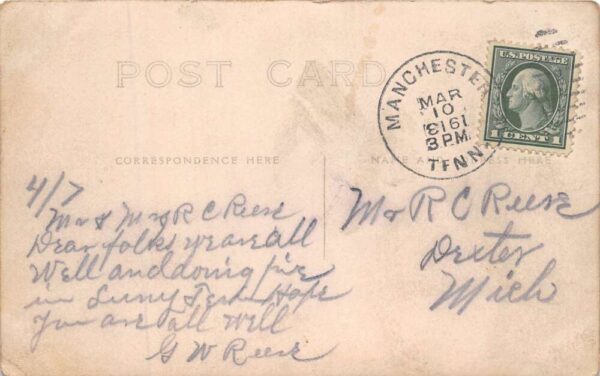 POST CARD
MANCHESTER
TENN.
MAR
10
3 PM
U.S. POSTAGE
1 CENT 1
CORRESPONDENCE HERE
NAME AND ADDRESS HERE
4/7
Mr & Mrs R C Reese
Dear folks we are all
Well and doing fine
in Suny Tenn Hope
You are all well
G W Reese
Mr R C Reese
Dexter
Mich